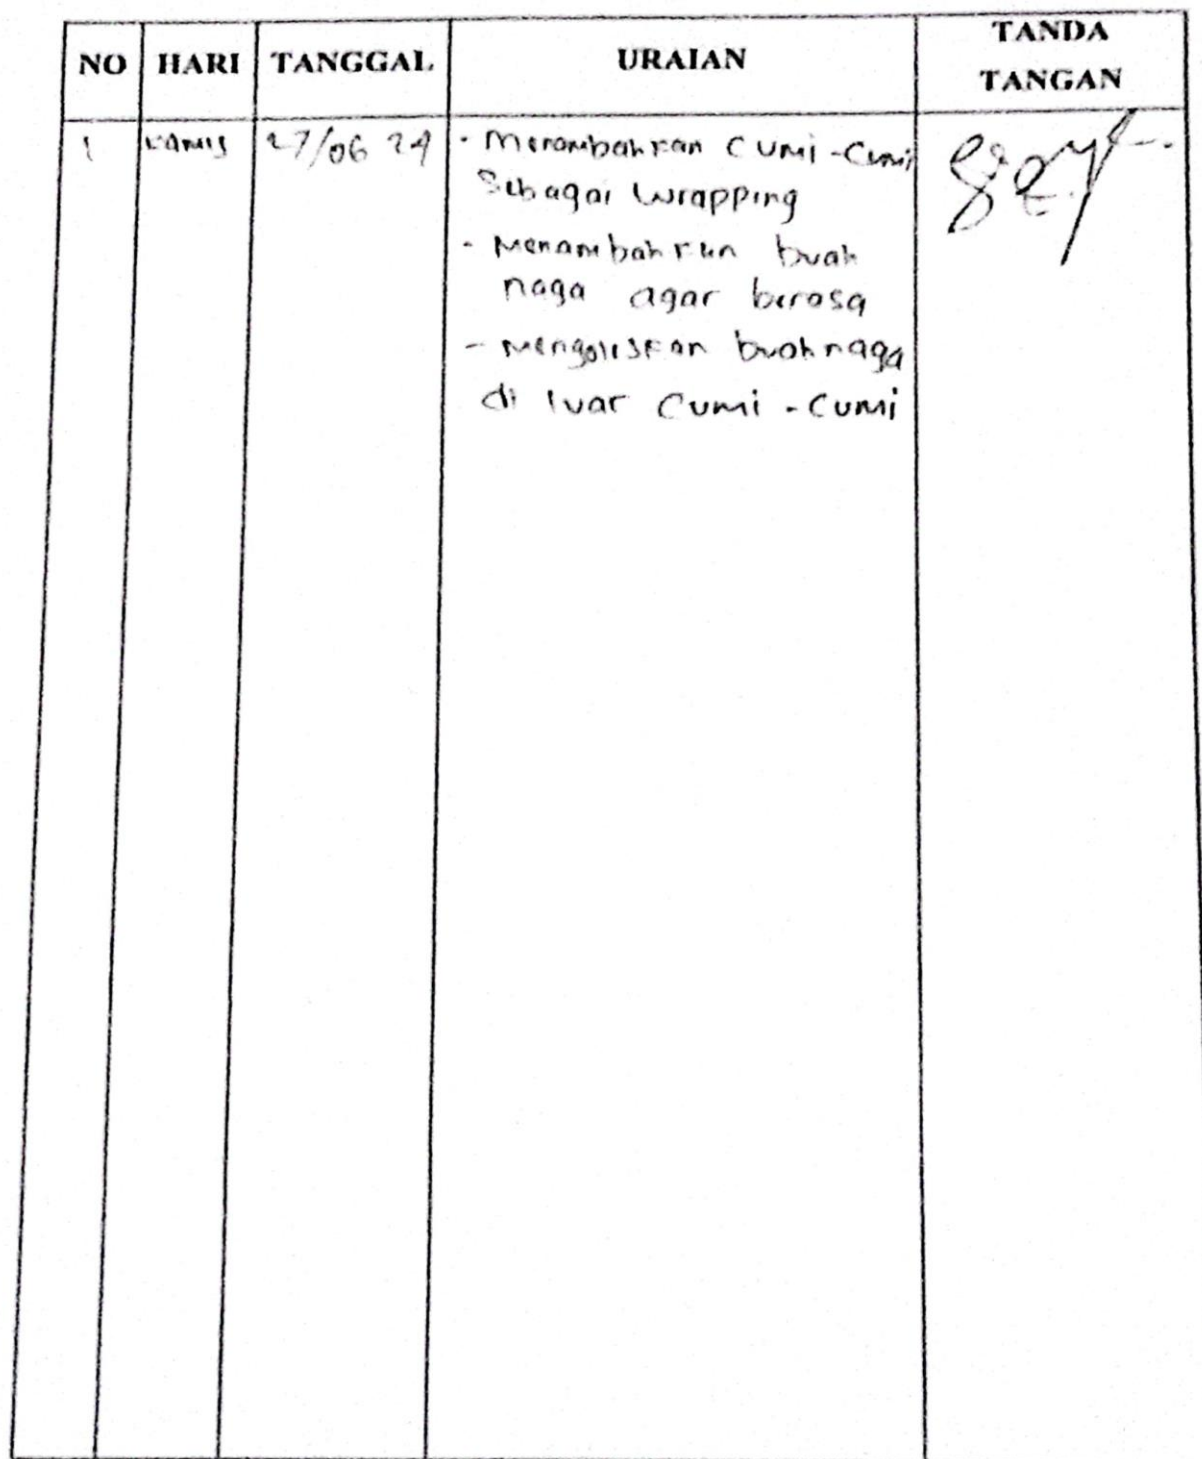 NO HARI TANGGAL URAIAN TANDA TANGAN
1 Kamis 27/06 24 - Menambahkan Cumi-Cumi
Sebagai Wrapping
- Menambahkan buah
naga agar berasa
- Mengoleskan buah naga
di luar Cumi-Cumi